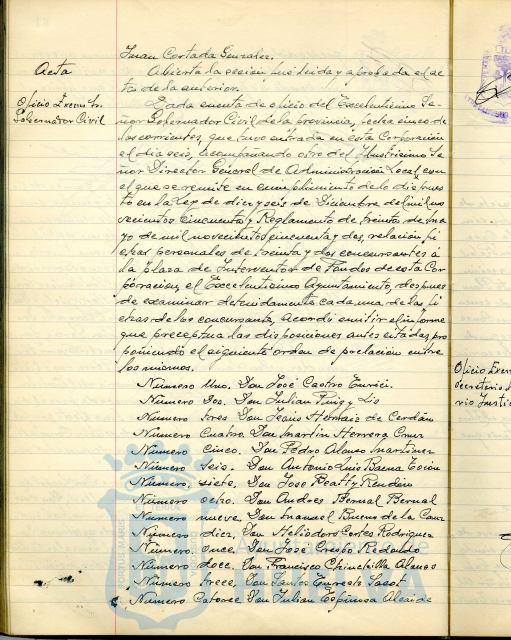 Juan Cortada Gonzalez.
Acta
Abierta la sesión fué leida y aprobada el ac-
ta de la anterior.
Oficio Excmo Sr.
Gobernador Civil
Dada cuenta de oficio del Excelentisimo Se-
ñor Gobernador Civil de la provincia, fecha cinco de
los corrientes, que tuvo entrada en esta Corporación
el dia seis, acompañando otro del Ilustrisimo Se-
ñor Director General de Administración Local con
el que se remite en cumplimiento de lo dispues
to en la Ley de diez y seis de Diciembre de mil no
vecientos cincuenta y Reglamento de treinta de ma
yo de mil novecientos cincuenta y dos, relación fi
chas personales de treinta y dos concursantes a
la plaza de Interventor de Fondos de esta Cor
poración, el Excelentisimo Ayuntamiento, despues
de examinar detenidamente cada una de las fi
chas de los concursantes, acordó emitir el informe
que preceptua las disposiciones antes citadas, pro
poniendo el siguiente orden de prelación entre
los mismos.
Número Uno. Don José Castro
Número Dos. Don Julian Puig y Lis
Número tres Don Jesús Hernaiz de Cerdán
Número Cuatro. Don Martin Herrera Cruz
Número cinco. Don Pedro Alonso Martinez
Número seis. Don Antonio Luis Baena
Número, siete, Don Jose Beatty Rendón
Número ocho. Don Andres Bernal Bernal
Número nueve, Don Manuel Bueno de la Cruz
Número diez, Don Heliodoro Cortes Rodriguez
Número. once, Don José Crespo Redondo
Número doce. Don Francisco Chinchilla Alonso
Número trece, Don Santos
Número Catorce Don Julian Espinosa Alcaide
Oficio Excm
Secretario d
rio Justic